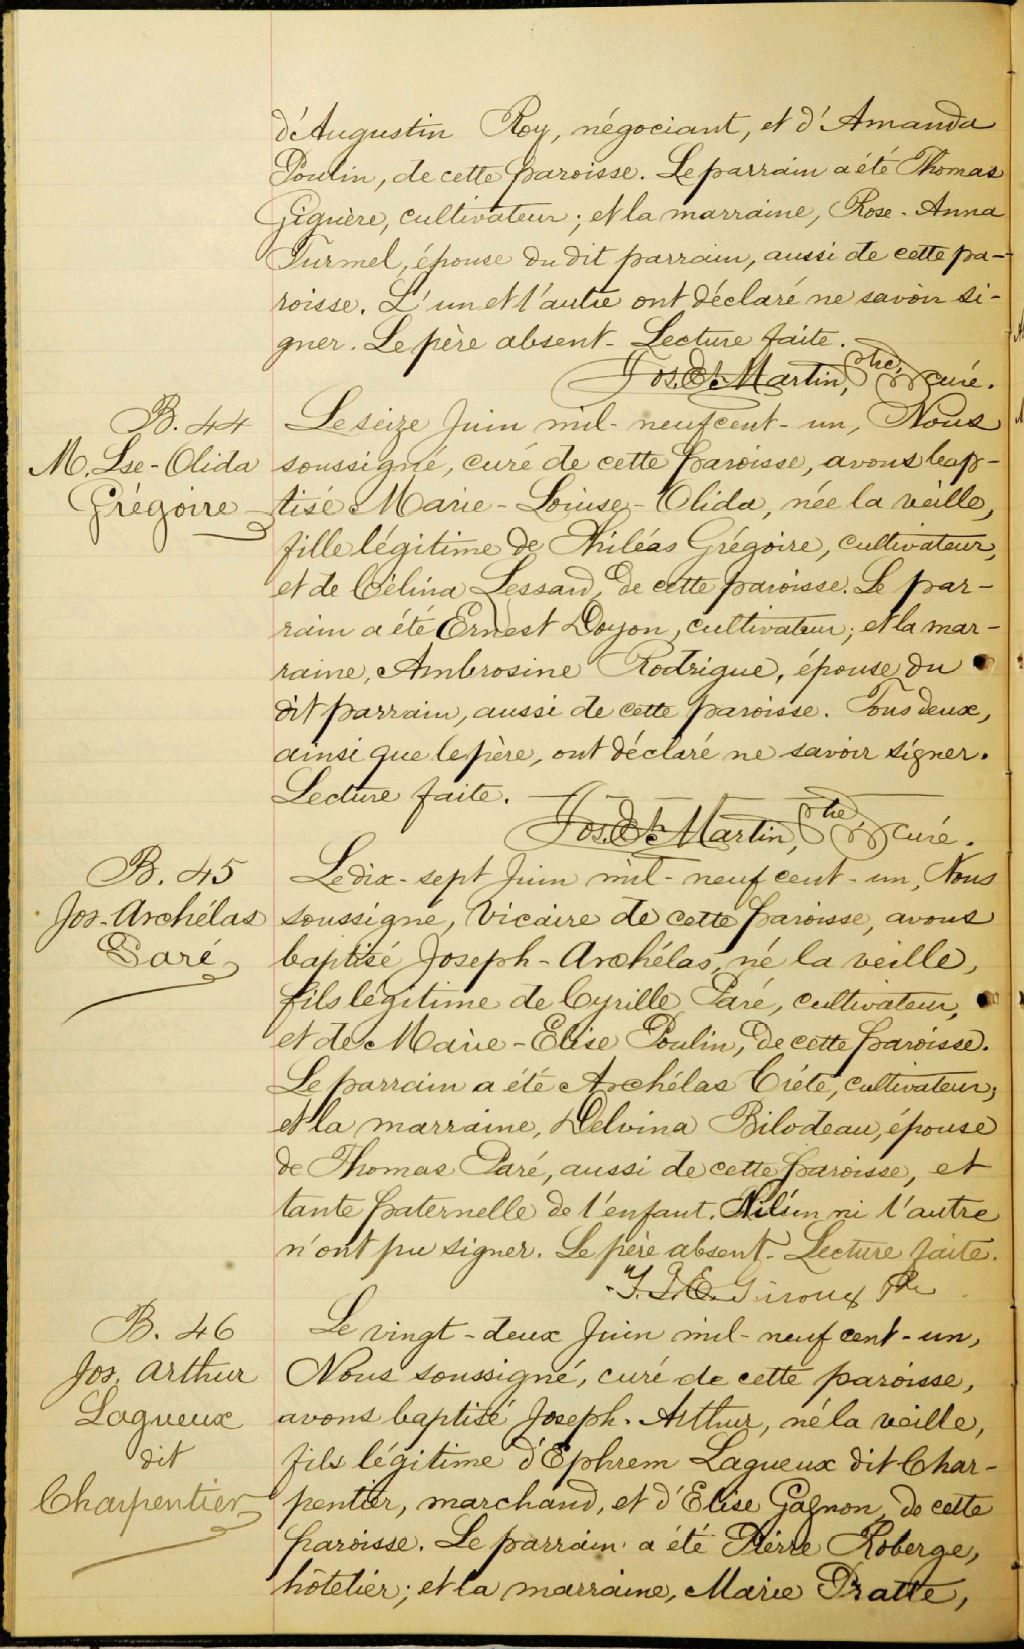 d'Augustin Roy, négociant, et d'Amanda
Poulin, de cette paroisse. Le parrain a été Thomas
Giguère, cultivateur; et la marraine, Rose-Anna
Turmel, épouse du dit parrain, aussi de cette pa-
roisse. L'un et l'autre ont déclaré ne savoir si-
gner. Le père absent - Lecture faite.
Jos. Et. Martin, Ptre, curé.
B. 44
M. Lse-Olida
Grégoire
Le seize Juin mil-neuf cent-un, Nous
soussigné, curé de cette paroisse, avons bap-
tisé Marie-Louise-Olida, née la veille,
fille légitime de Philéas Grégoire, cultivateur,
et de Célina Lessard, de cette paroisse. Le par-
rain a été Ernest Doyon, cultivateur; et la mar-
raine, Ambrosine Rodrigue, épouse du
dit parrain, aussi de cette paroisse. Tous deux,
ainsi que le père, ont déclaré ne savoir signer.
Lecture faite.
Jos. Et. Martin, Ptre, curé.
B. 45
Jos-Archélas
Paré
Le dix-sept Juin mil-neuf cent-un, Nous
soussigné, Vicaire de cette paroisse, avons
baptisé Joseph-Archélas, né la veille,
fils légitime de Cyrille Paré, cultivateur,
et de Marie-Elise Poulin, de cette paroisse.
Le parrain a été Archélas Crête, cultivateur;
et la marraine, Delvina Bilodeau, épouse
de Thomas Paré, aussi de cette paroisse, et
tante paternelle de l'enfant. Ni l'un ni l'autre
n'ont pu signer. Le père absent - Lecture faite.
Giroux Ptre
B. 46
Jos. Arthur
Lagueux
dit
Charpentier
Le vingt-deux Juin mil-neuf cent-un,
Nous soussigné, curé de cette paroisse,
avons baptisé Joseph-Arthur, né la veille,
fils légitime d'Ephrem Lagueux dit Char-
pentier, marchand, et d'Elise Gagnon, de cette
paroisse. Le parrain a été Pierre Roberge,
hôtelier; et la marraine, Marie Pratte,